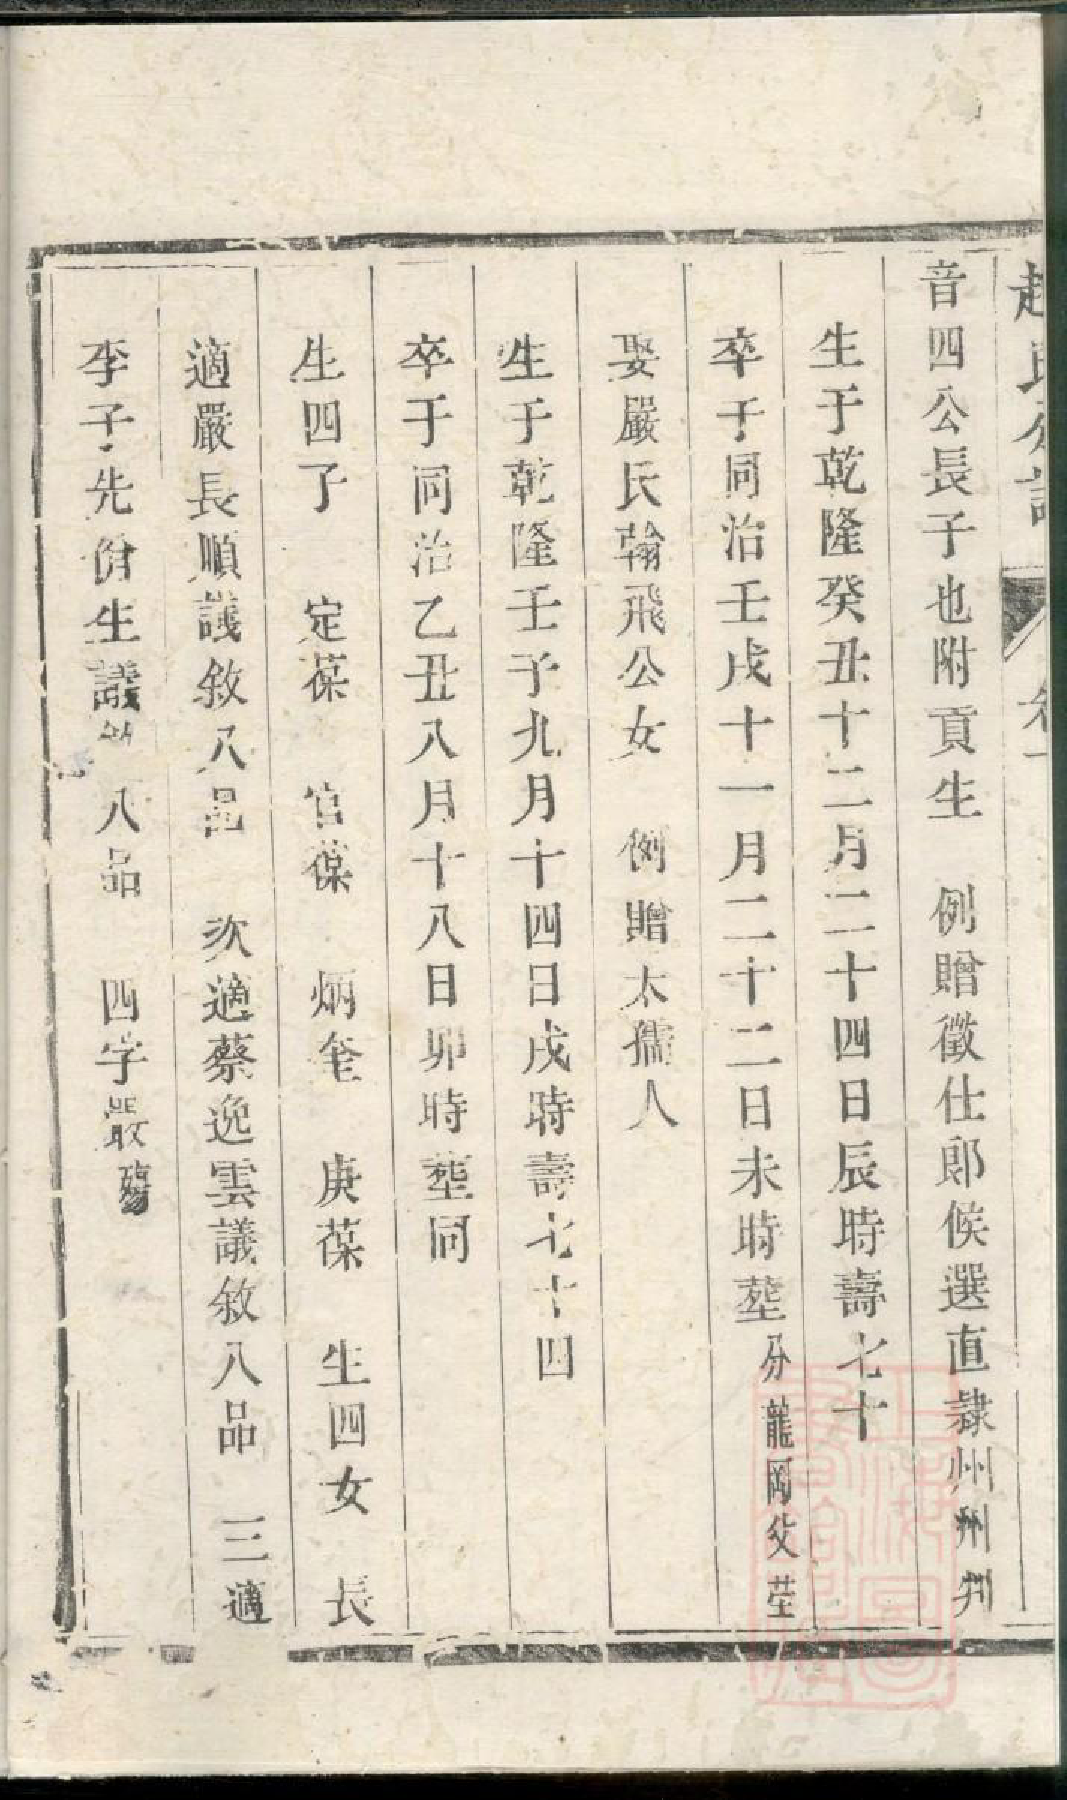 趙氏分譜 卷一
音四公長子也附貢生 例贈徵仕郎候選直隸州州判
生于乾隆癸丑十二月二十四日辰時壽七十
卒于同治壬戌十一月二十二日未時塟分龍岡父塋
娶嚴氏翰飛公女 例贈太孺人
生于乾隆壬子九月十四日戌時壽七十四
卒于同治乙丑八月十八日卯時塟同
生四子 定葆 官葆 炳奎 庚葆 生四女 長
適嚴長順議敘八品 次適蔡逸雲議敘八品 三適
李子先俏生議敘八品 四字嚴殤